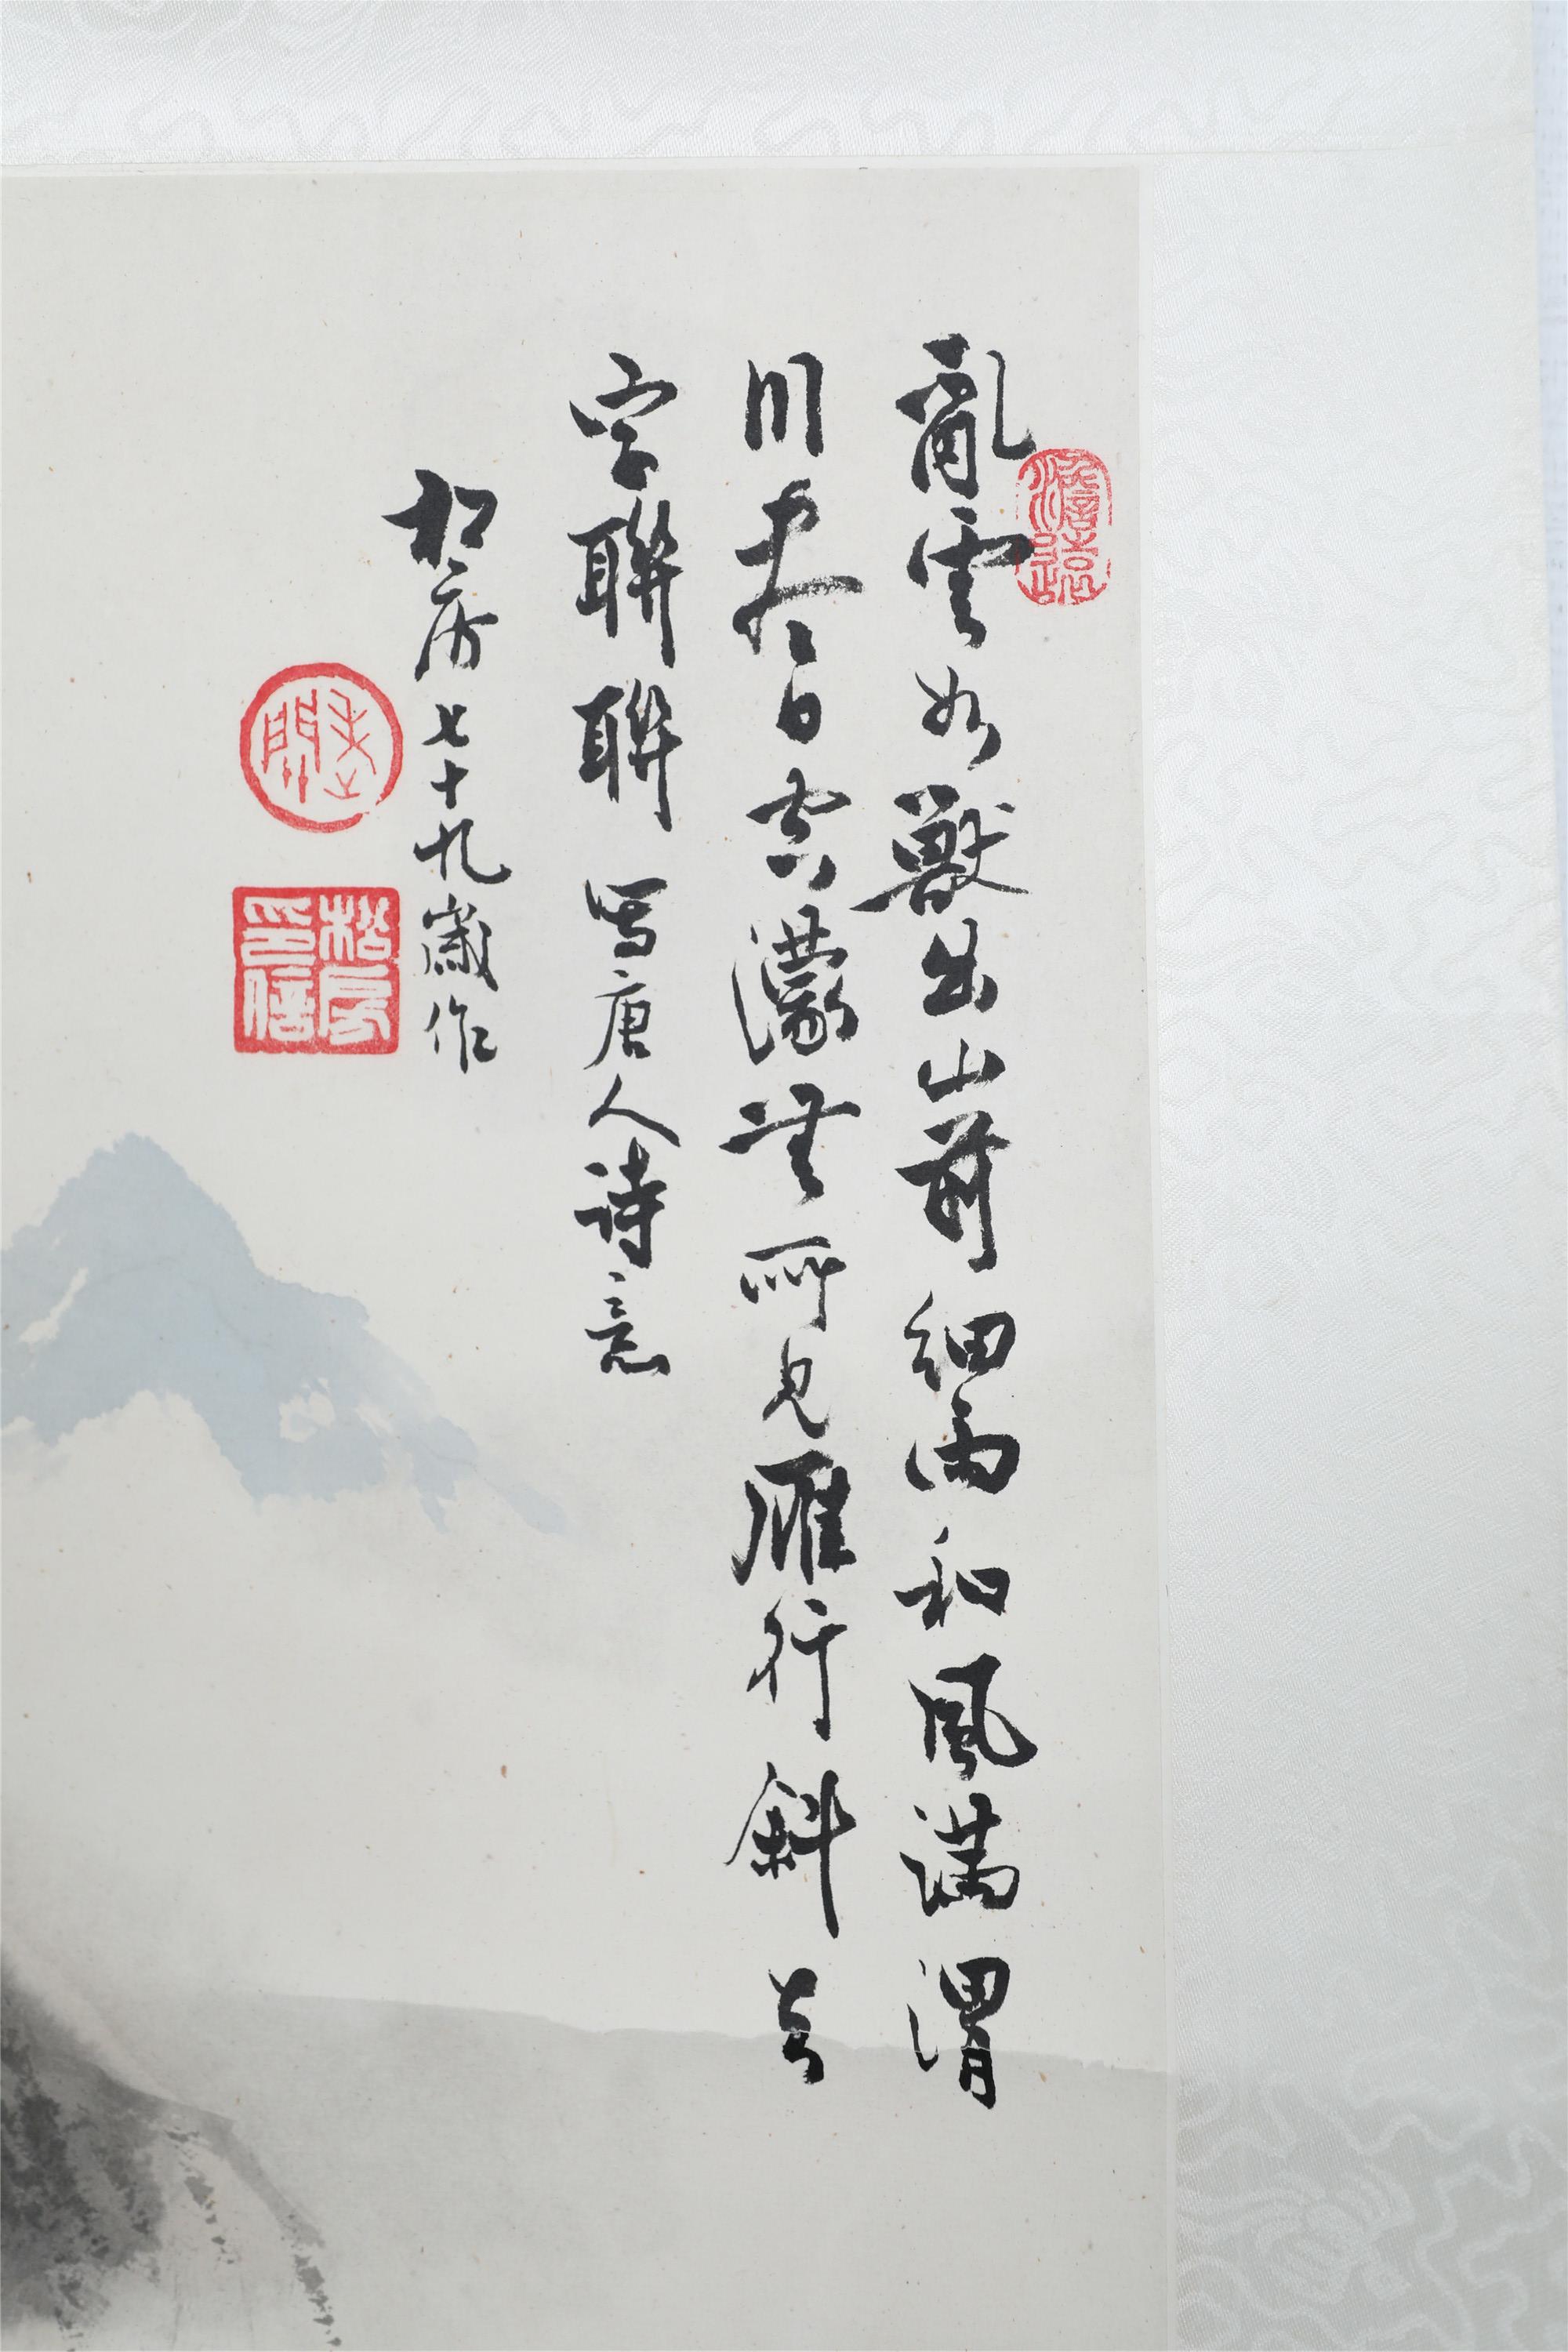 亂雲如獸出山前細雨和風滿渭
川盡日空濛無所見雁行斜去
字聯聯 寫唐人詩意
松房七十九歲作
松房
印信